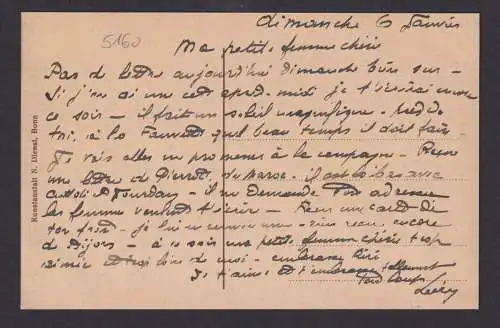 5160
dimanche 6 Janvier
Ma petite femme chérie
Pas de lettre aujourd'hui dimanche bien sur -
Si j'en ai une cet après-midi je t'écrirai encore
ce soir - il fait un soleil magnifique - près de
toi, à la quel beau temps il doit faire -
Je vais aller me promener à la campagne - Reçu
une lettre de Pierrot, du Maroc. il est là bas avec
Jourdan - il me demande ton adresse
les femmes veulent t'écrire - Reçu une carte de
ton frère - je lui - rien reçu encore
de Dijon - à ce soir ma petite femme chérie trop
aimée et trop loin de moi - embrasse
Je t'aime et t'embrasse tellement
Ton loup
Kunstanstalt N. Dienst, Bonn